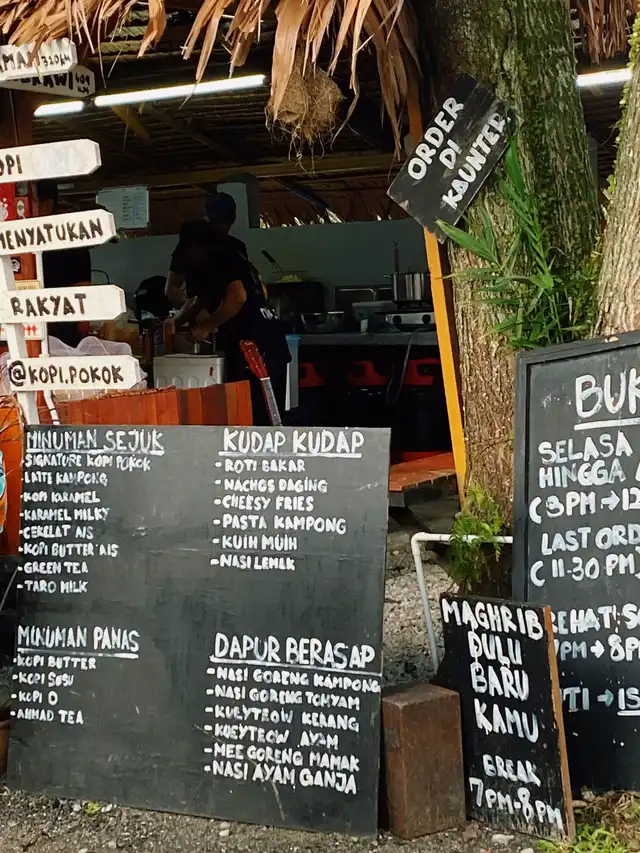 320KM
KOPI
MENYATUKAN
RAKYAT
@KOPI.POKOK
ORDER
DI
KAUNTER
MINUMAN SEJUK
SIGNATURE KOPI POKOK
LATTE KAMPONG
- KOPI KARAMEL
- KARAMEL MILKY
- CEKELAT AIS
- KOPI BUTTER AIS
- GREEN TEA
- TARO MILK
MINUMAN PANAS
- KOPI BUTTER
- KOPI SUSU
- KOPI O
- AHMAD TEA
KUDAP KUDAP
- ROTI BAKAR
- NACHOS DAGING
- CHEESY FRIES
- PASTA KAMPONG
- KUIH MUIH
- NASI LEMAK
DAPUR BERASAP
- NASI GORENG KAMPONG
- NASI GORENG TOMYAM
- KUEYTEOW KERANG
- KUEYTEOW AYAM
- MEE GORENG MAMAK
- NASI AYAM GANJA
MAGHRIB
DULU
BARU
KAMU
BREAK
7PM-8PM
BUK
SELASA
HINGGA
(3PM → 12
LAST ORD
(11.30 PM)
REHAT:
7PM → 8P
UTI → IS